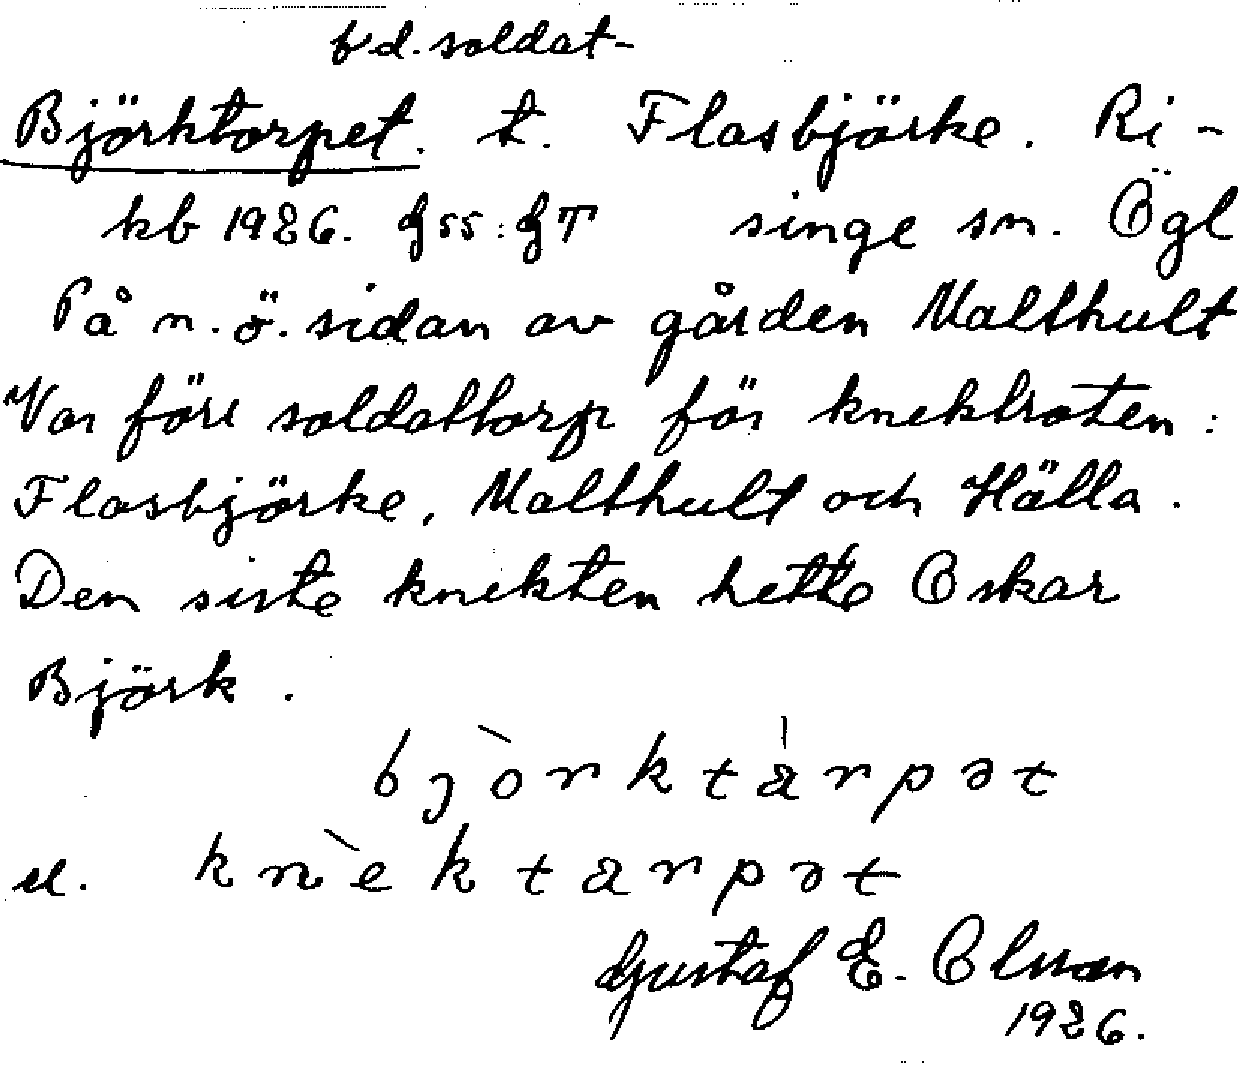 f d. soldat-
Björktorpet. t. Flasbjörke. Ri-
kb 1926. G55:GT singe sn. Ögl
På n.ö. sidan av gården Malthult
Var förr soldattorp för knektroten:
Flasbjörke, Malthult och Hälla.
Den siste knekten hette Oskar
Björk.
bjòrktarpət
el. knèktarpət
Gustaf E. Olsson
1926.